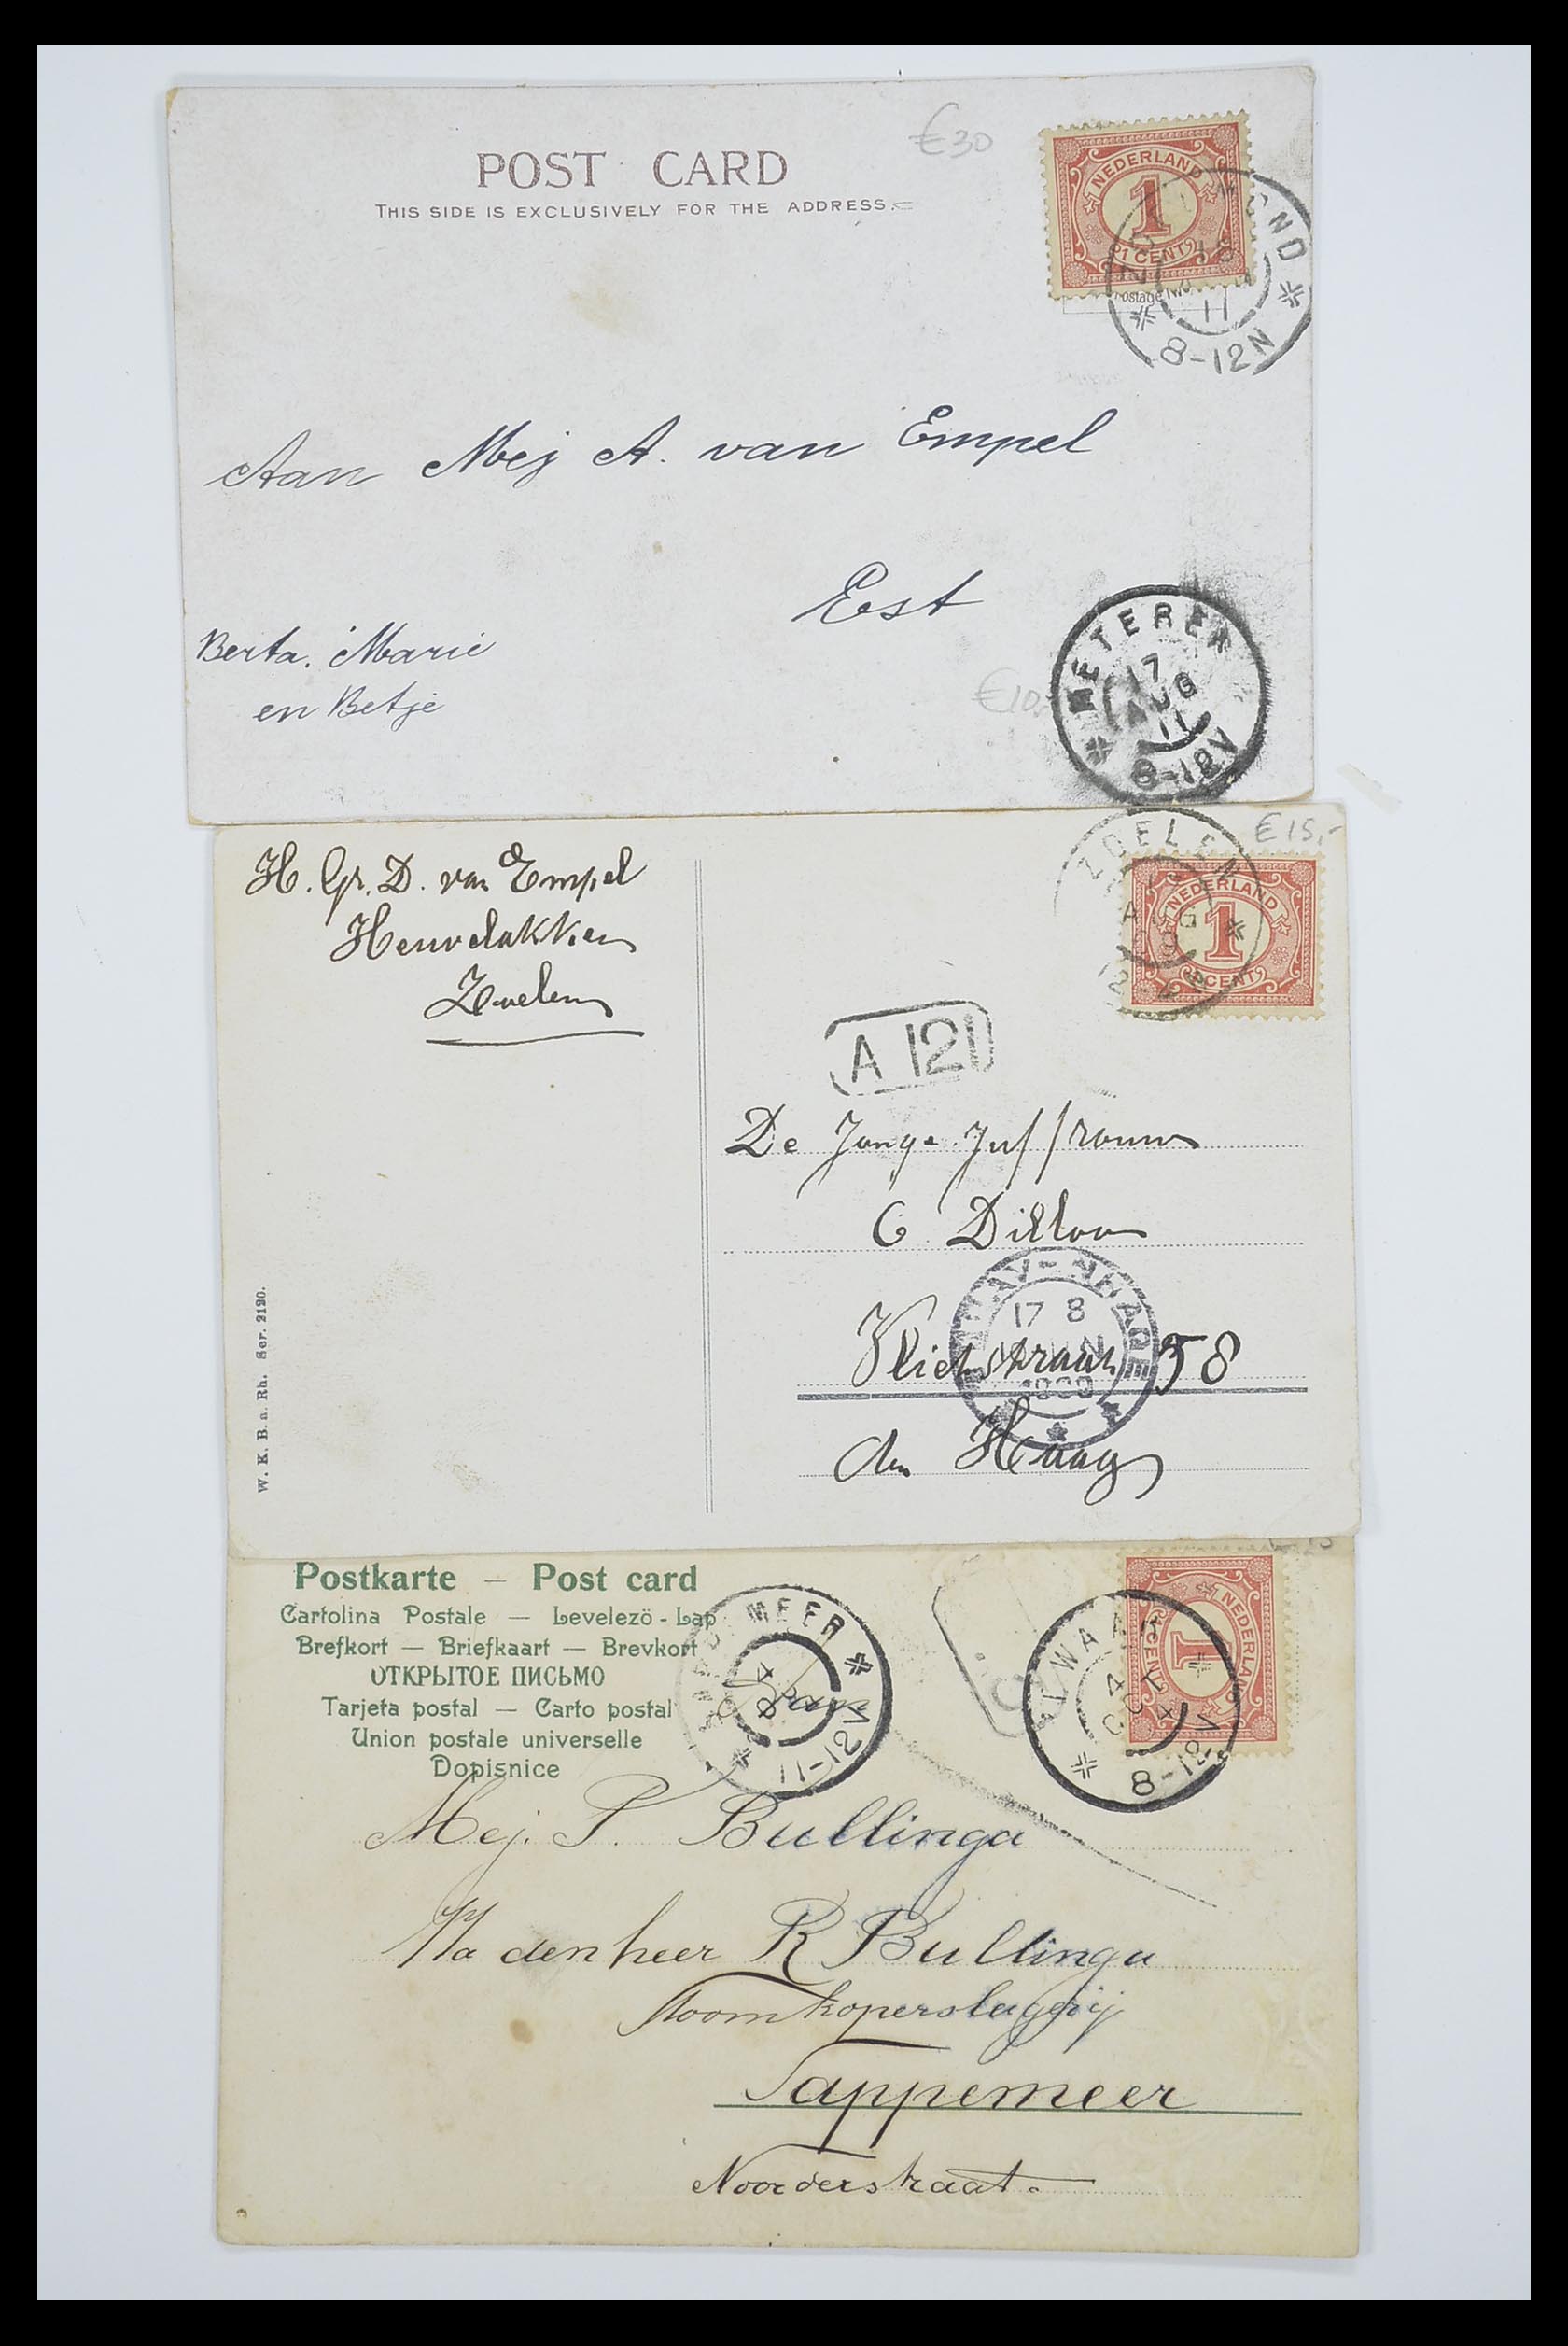 POST CARD
€30
THIS SIDE IS EXCLUSIVELY FOR THE ADDRESS.
NEDERLAND
1
1 CENT
18
11
8-12N
Aan Mej A. van Empel
Est
Berta. Marie
en Betje
€10,-
METEREN
17
AUG
11
8-12V
€15,-
H. Gr. D. van Empel
Zoelen
ZOELEN
AUG
NEDERLAND
1
CENT
A 121
De Jonge Juffrouw
C
Vlietstraat 58
den Haag
'S-GRAVENHAGE
17 8
W. K. B. a. Rh. Ser. 2120.
Postkarte — Post card
Cartolina Postale — Levelezö-Lap
Brefkort — Briefkaart — Brevkort
ОТКРЫТОЕ ПИСЬМО
Tarjeta postal — Carto postal
Union postale universelle
Dopisnice
MEER
11-12V
NEDERLAND
1
1 CENT
4 OCT
8-12V
Mej. P. Bullinga
R Bullinga
Stoomkoperslagerij
Sappemeer
Noorderstraat.